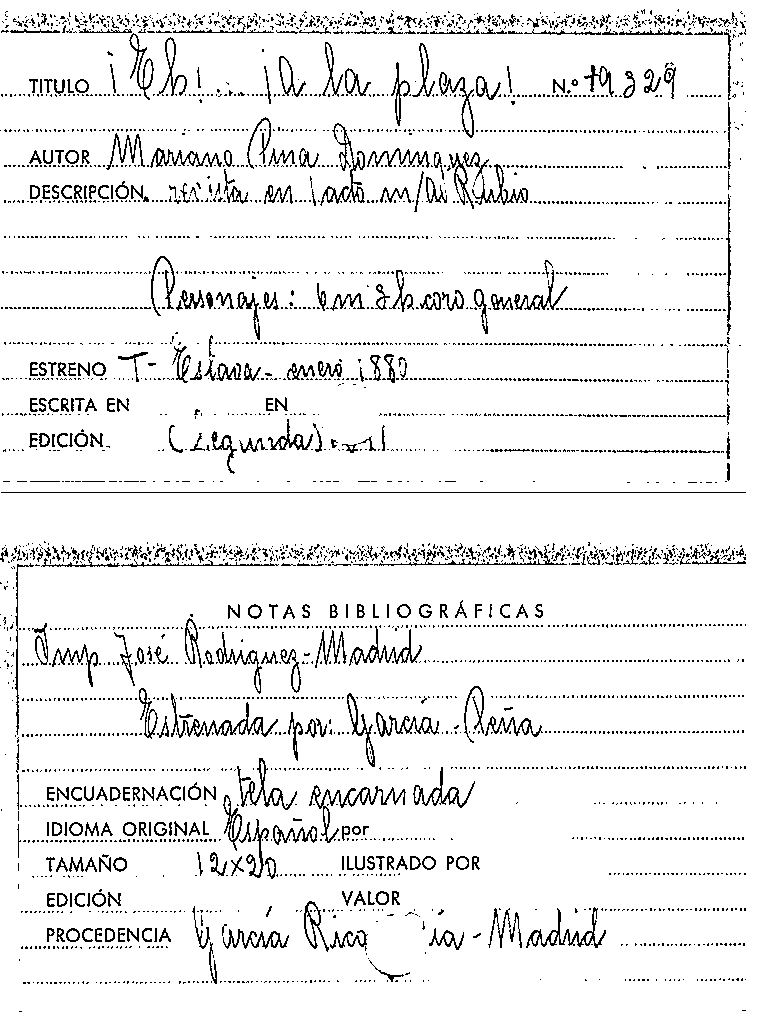 TITULO ¡Eh!... ¡A la plaza! N.º 19329
AUTOR Mariano Pina Dominguez
DESCRIPCIÓN. revista en 1 acto m/ Al Rubio
Personajes: 6m 3h coro general
ESTRENO T- Eslava - enero 1880
ESCRITA EN EN
EDICIÓN (Segunda)
NOTAS BIBLIOGRÁFICAS
Imp José Rodriguez - Madrid
Estrenada por: García - Peña
ENCUADERNACIÓN tela encarnada
IDIOMA ORIGINAL Español por
TAMAÑO 12x20 ILUSTRADO POR
EDICIÓN VALOR
PROCEDENCIA García Rico ía - Madrid